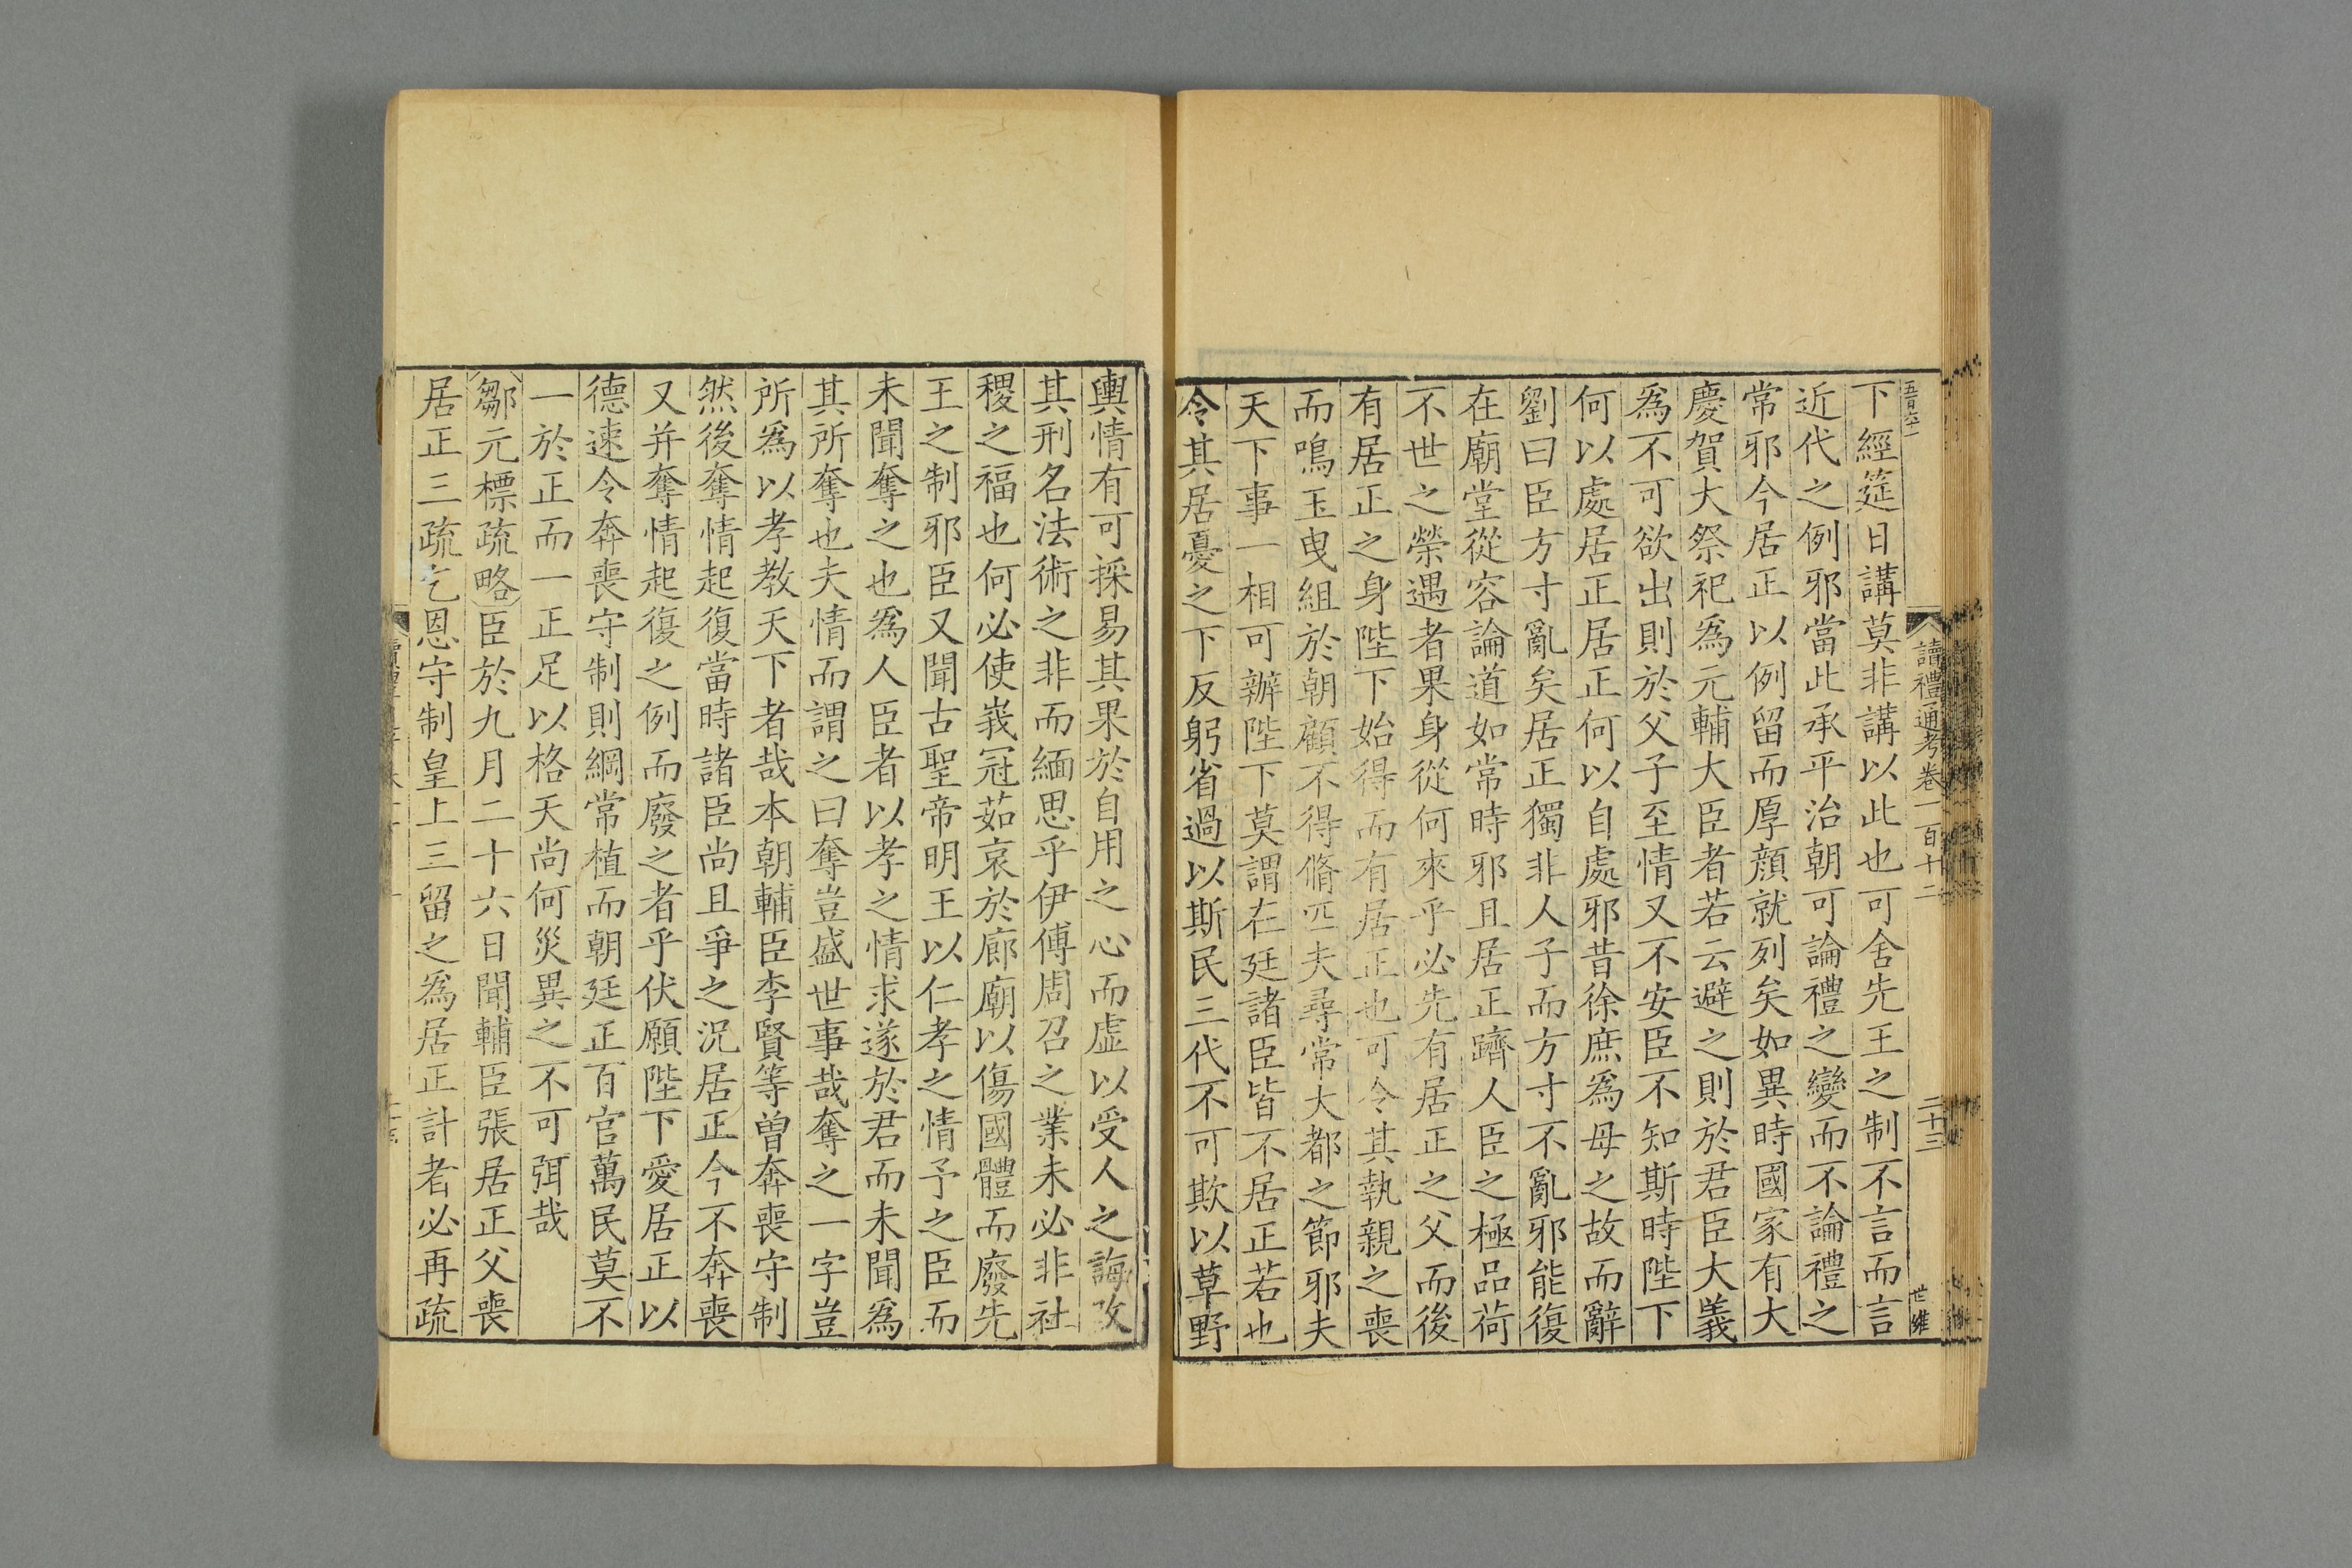 五百六十一
讀禮通考卷一百十二
二十三
世維
下經筵日講莫非講以此也可舍先王之制不言而言
近代之例邪當此承平治朝可論禮之變而不論禮之
常邪今居正以例留而厚顔就列矣如異時國家有大
慶賀大祭祀爲元輔大臣者若云避之則於君臣大義
爲不可欲出則於父子至情又不安臣不知斯時陛下
何以處居正居正何以自處邪昔徐庶爲母之故而辭
劉曰臣方寸亂矣居正獨非人子而方寸不亂邪能復
在廟堂從容論道如常時邪且居正躋人臣之極品荷
不世之榮遇者果身從何來乎必先有居正之父而後
有居正之身陛下始得而有居正也可令其執親之喪
而鳴玉曳組於朝顧不得脩匹夫尋常大都之節邪夫
天下事一相可辦陛下莫謂在廷諸臣皆不居正若也
令其居憂之下反躬省過以斯民三代不可欺以草野
輿情有可採易其果於自用之心而虛以受人之誨改
其刑名法術之非而緬思乎伊傅周召之業未必非社
稷之福也何必使峩冠茹哀於廊廟以傷國體而廢先
王之制邪臣又聞古聖帝明王以仁孝之情予之臣而
未聞奪之也爲人臣者以孝之情求遂於君而未聞爲
其所奪也夫情而謂之曰奪豈盛世事哉奪之一字豈
所爲以孝教天下者哉本朝輔臣李賢等曾奔喪守制
然後奪情起復當時諸臣尚且爭之況居正今不奔喪
又并奪情起復之例而廢之者乎伏願陛下愛居正以
德速令奔喪守制則綱常植而朝廷正百官萬民莫不
一於正而一正足以格天尚何災異之不可弭哉
鄒元標疏略臣於九月二十六日聞輔臣張居正父喪
居正三疏乞恩守制皇上三留之爲居正計者必再疏